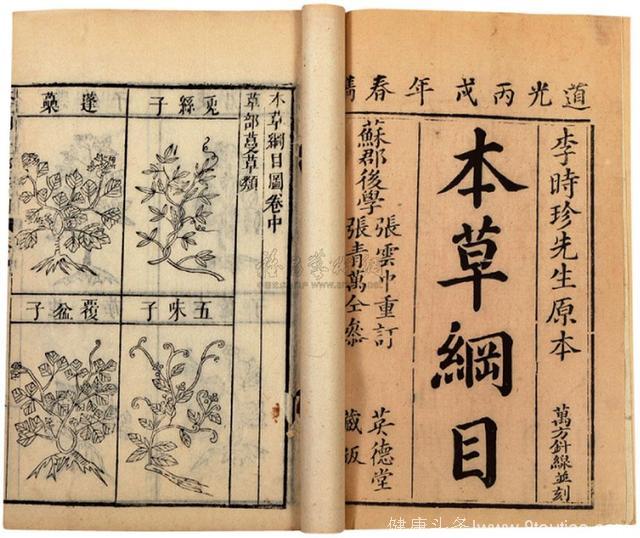 道光丙戌年春鐫
李時珍先生原本
萬方針線並刻
本草綱目
蘇郡後學
張雲中重訂
張青萬仝參
英德堂
藏板
本草綱目圖卷中
草部蔓草類
兎絲子
蓬蘽
五味子
覆盆子
健康头条